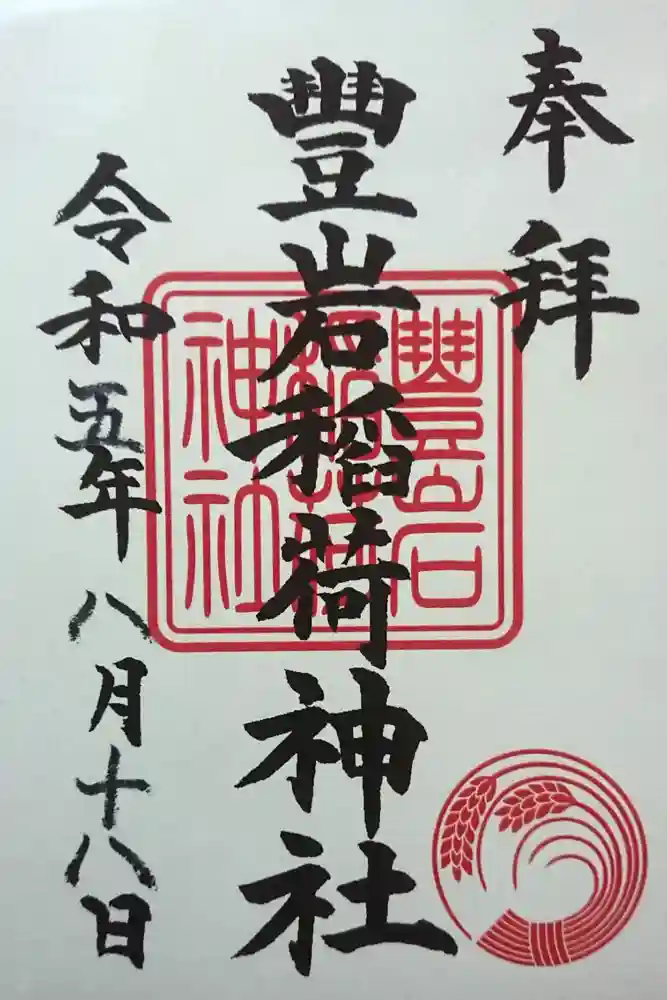 奉拝
豐岩稻荷神社
豐岩
稻荷
神社
令和五年八月十八日